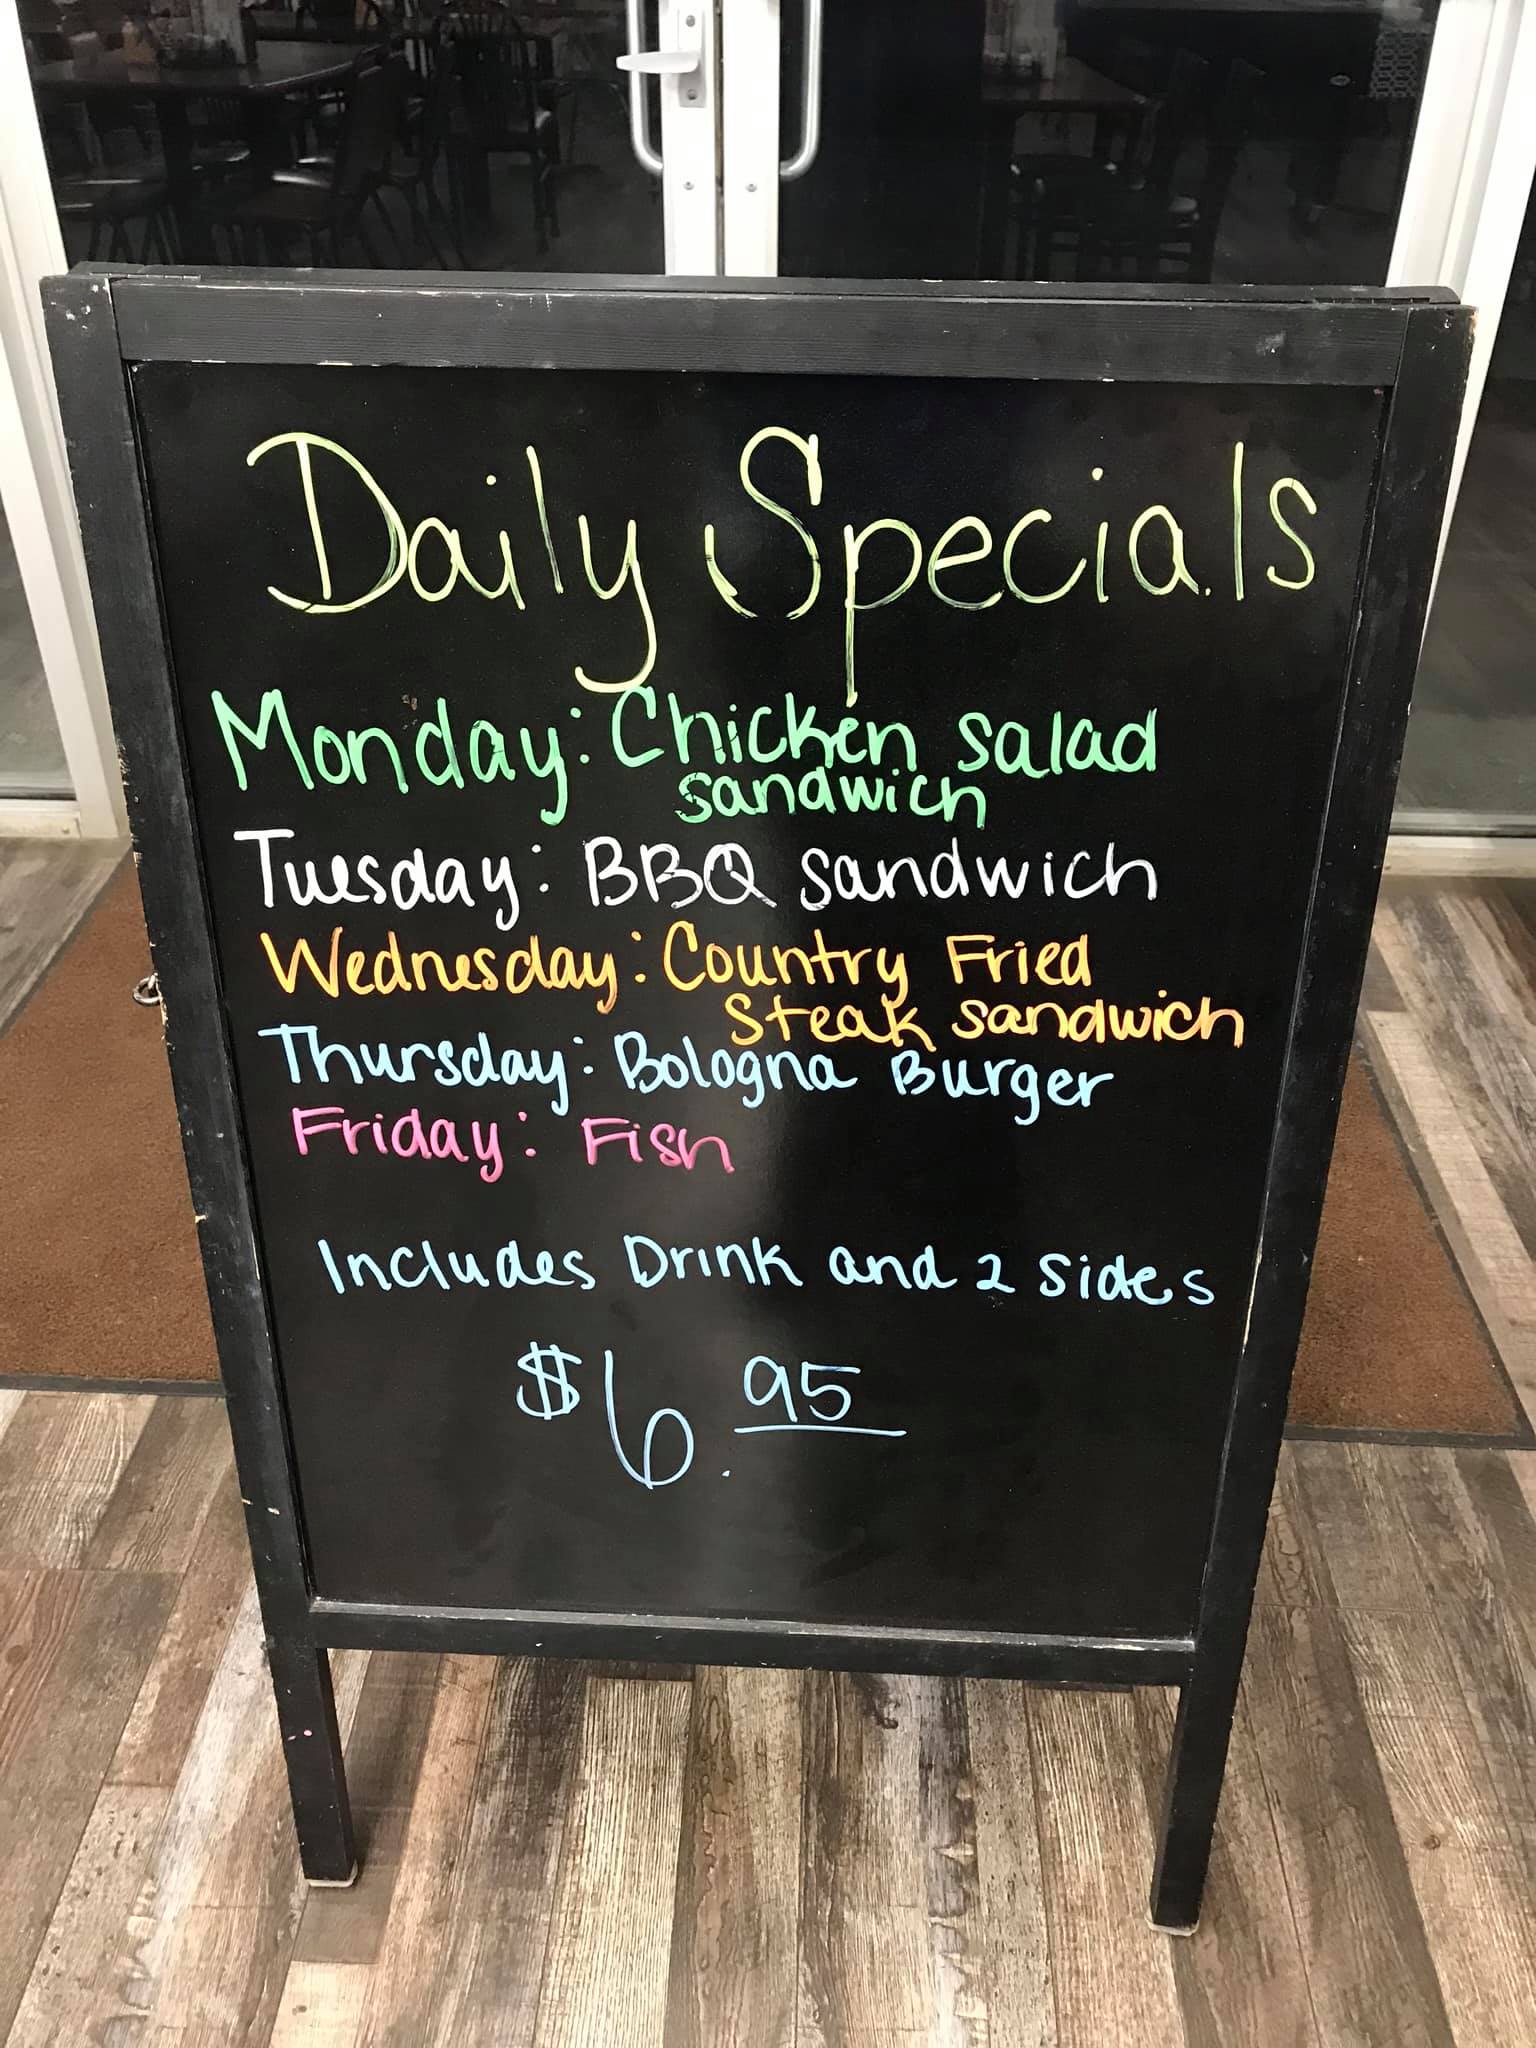 Daily Specials
Monday: Chicken Salad
sandwich
Tuesday: BBQ Sandwich
Wednesday: Country Fried
Steak Sandwich
Thursday: Bologna Burger
Friday: Fish
Includes Drink and 2 Sides
$6.95